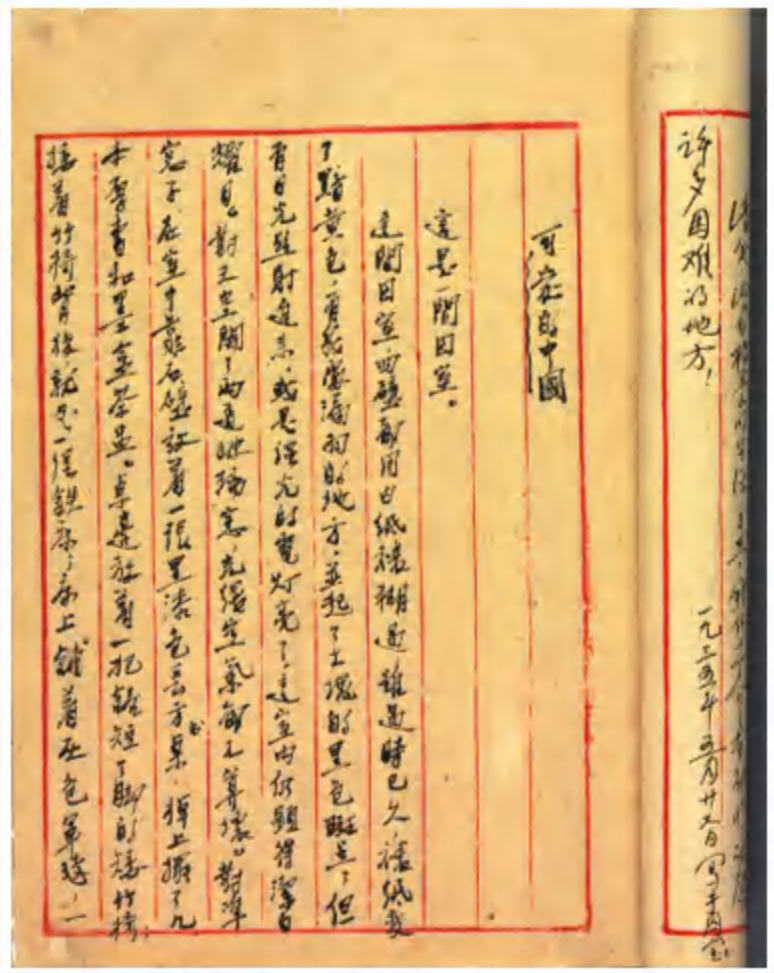 许多困难的地方！
一九三五年五月廿六日写于囚室
可爱的中國
這是一間囚室。
這間囚室，四壁都用白紙裱糊過，雖過時已久，裱紙變
了黯黄色，有幾處漏雨的地方，並起了大塊的黑色斑點；但
有日光照射進來，或是强光的電灯亮了，這室内仍顯得潔白
耀目。對天空開了两道玻璃窗，光綫空氣都不算壞。對準
窗子，在室中靠石壁放着一張黑漆色長方書桌，桌上擺了几
本厚書和墨盒茶盅。桌邊放着一把鋸短了脚的矮竹椅；
接着竹椅背後，就是一張鉄床；床上鋪着灰色軍毯，一